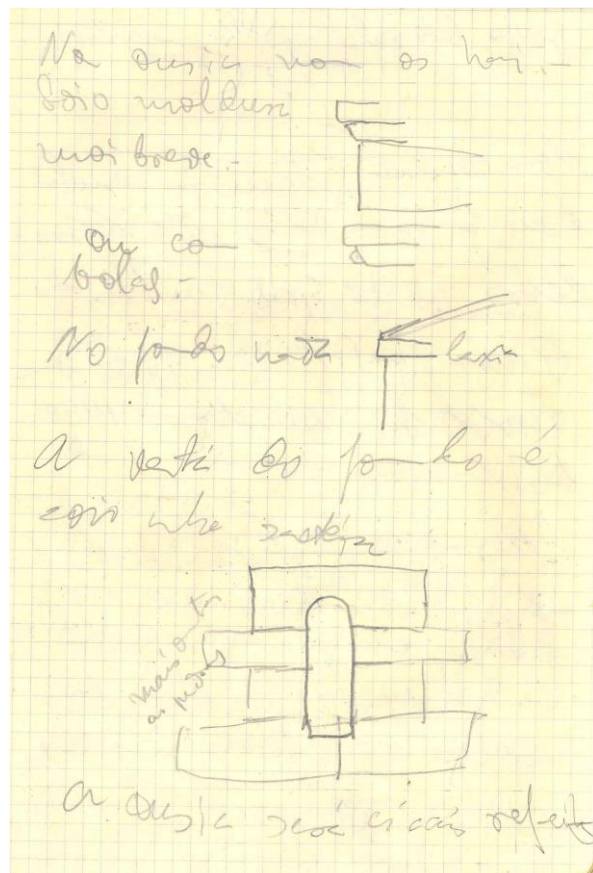 Na ousia non os hai.-
Soio moldura
mais breve.-
ou co
bolas.-
No fondo nada
laxa
A ventá do fondo é
coio unha
mais outra
as pedras
A ousia será cicais refeita